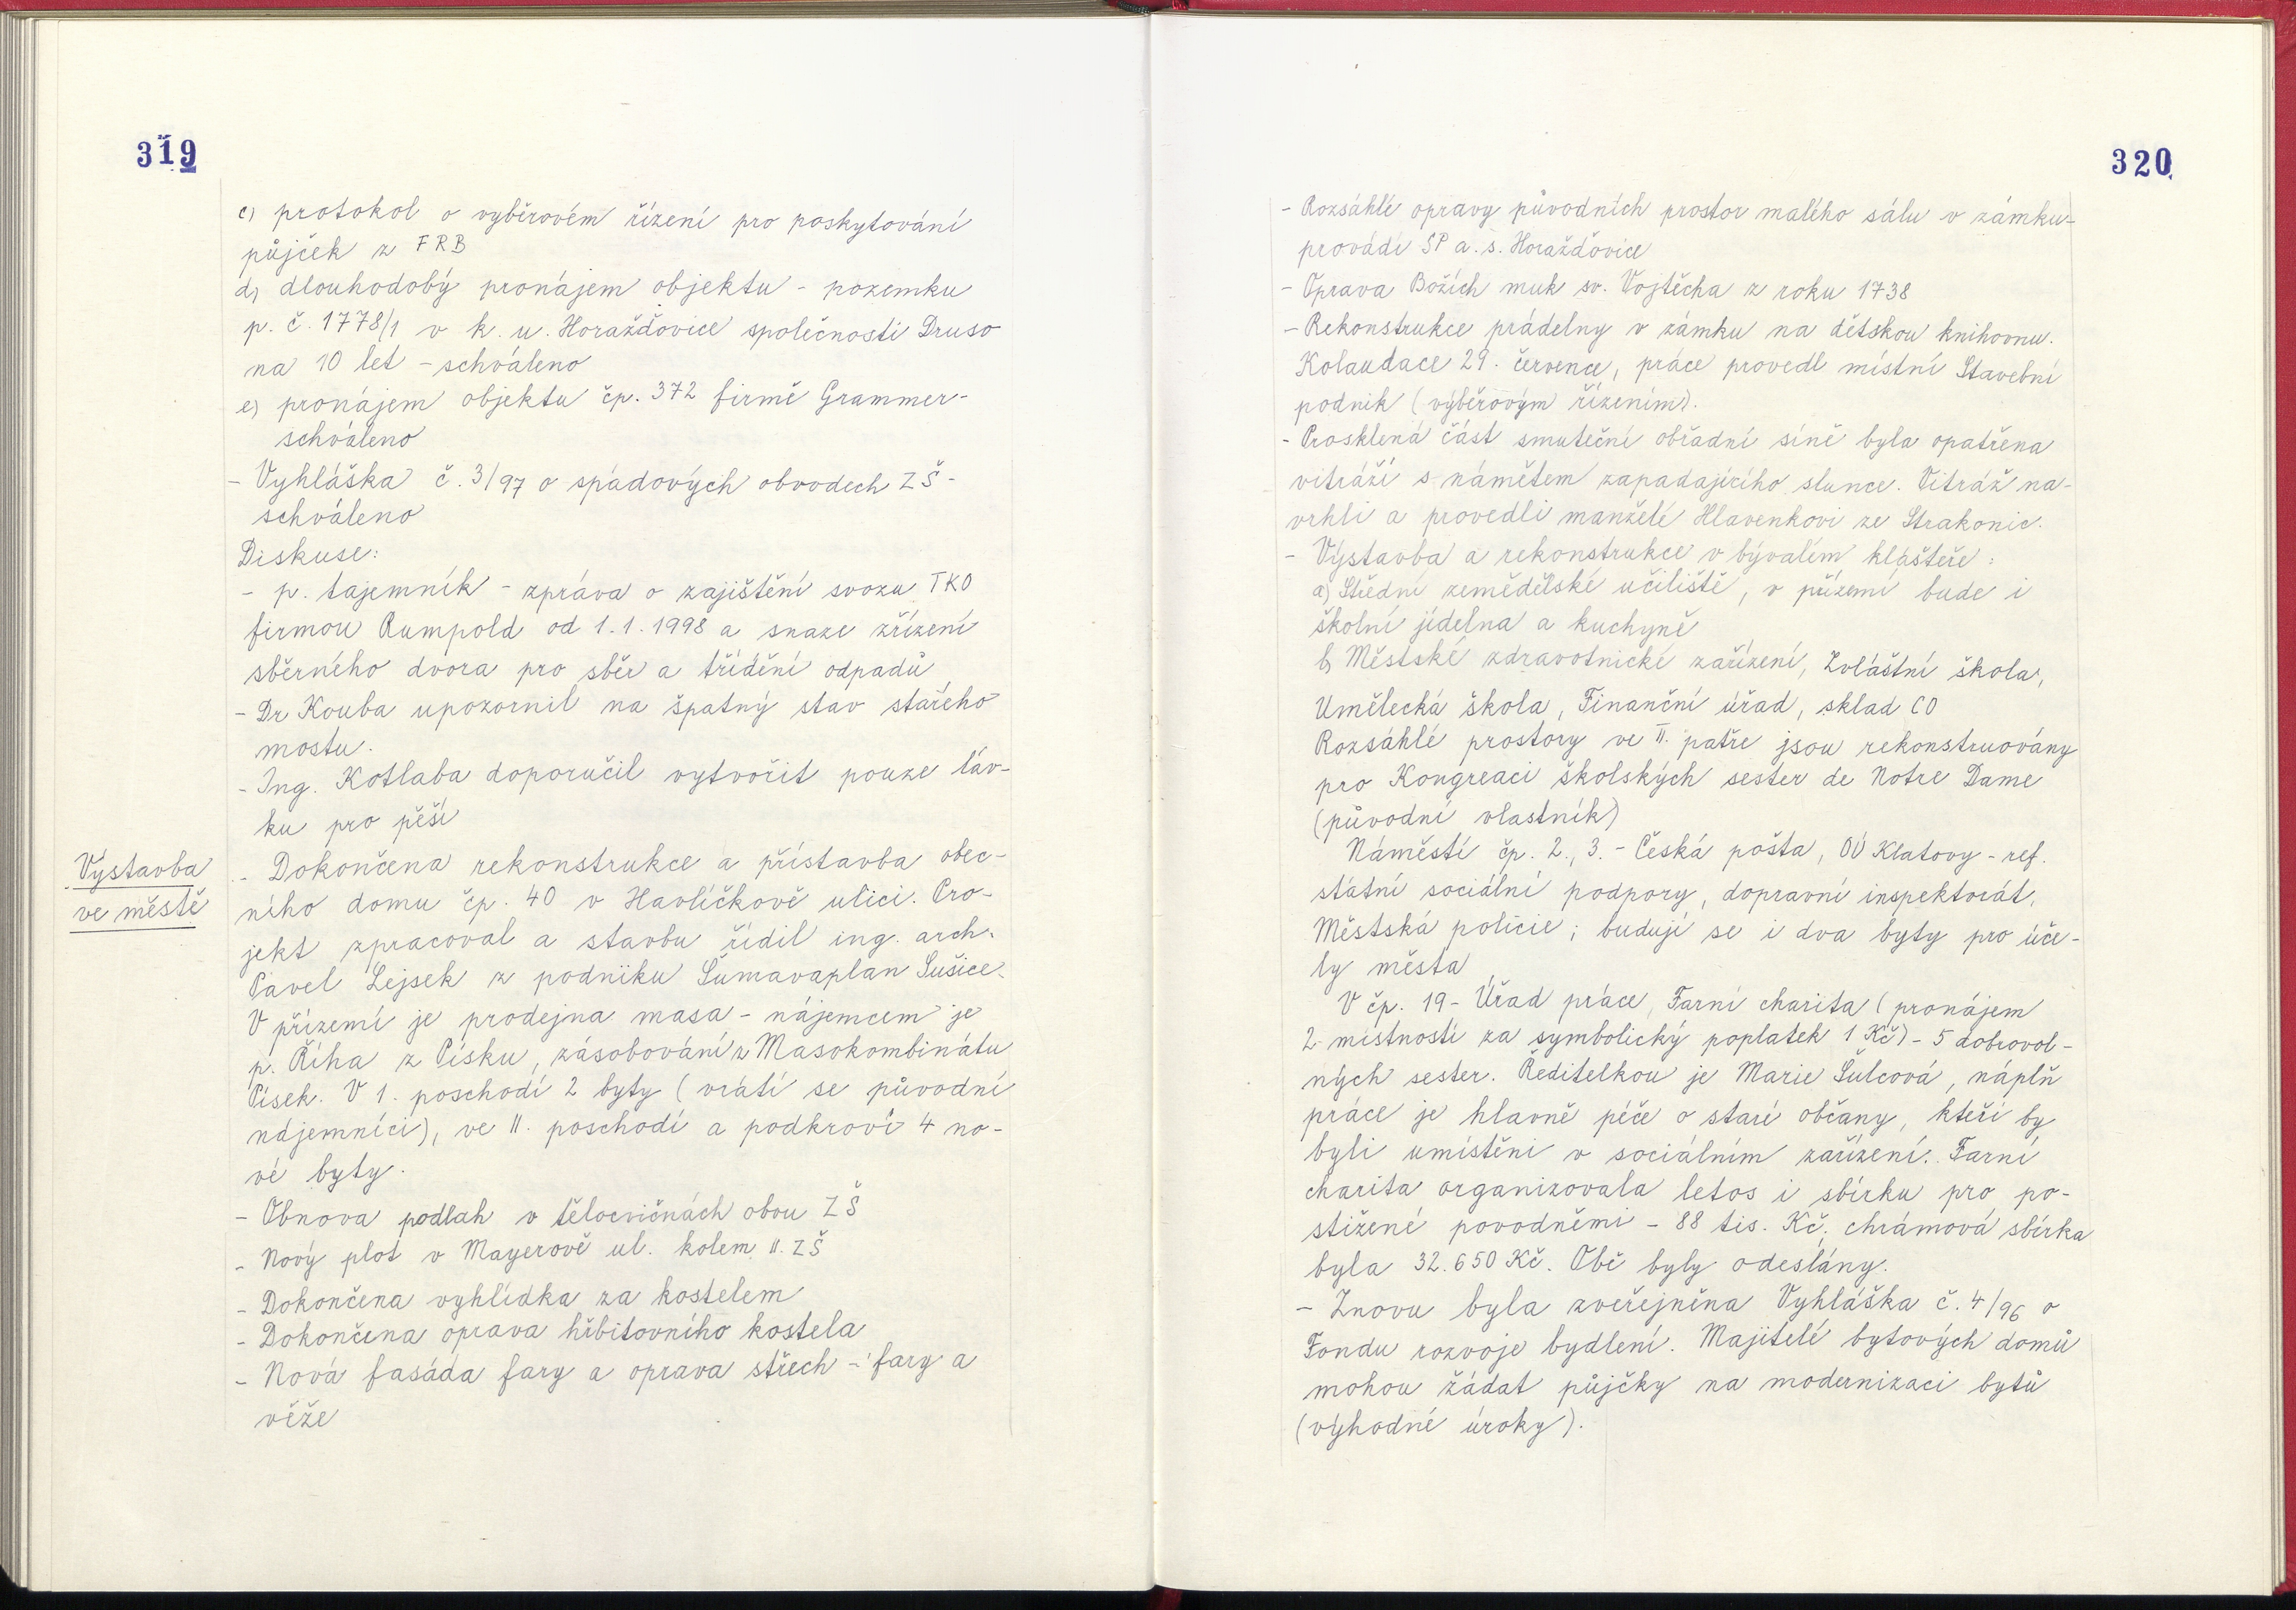 319
c) protokol o vyběrovém řízení pro poskytování
půjček z FRB
d) dlouhodobý pronájem objektu - pozemku
p. č. 1778/1 v k. u. Horažďovice společnosti Druso
na 10 let - schváleno
e) pronájem objektu čp. 372 firmě Grammer -
schváleno
- Vyhláška č. 3/97 o spádových obvodech ZŠ -
schváleno
Diskuse:
- p. tajemník - zpráva o zajištění svozu TKO
firmou Rumpold od 1.1.1998 a snaze zřízení
sběrného dvora pro sběr a třídění odpadů
- Dr Kouba upozornil na špatný stav starého
mostu.
- Ing. Kotlaba doporučil vytvořit pouze láv-
ku pro pěší
Výstavba
ve městě
- Dokončena rekonstrukce a přístavba obec-
ního domu čp. 40 v Havlíčkově ulici. Pro-
jekt zpracoval a stavbu řídil ing. arch.
Pavel Lejsek z podniku Šumavaplan Sušice.
V přízemí je prodejna masa - nájemcem je
p. Říha z Písku, zásobování z Masokombinátu
Písek. V 1. poschodí 2 byty (vrátí se původní
nájemníci), ve II. poschodí a podkroví 4 no-
vé byty.
- Obnova podlah v tělocvičnách obou ZŠ
- Nový plot v Mayerově ul. kolem II. ZŠ
- Dokončena vyhlídka za kostelem
- Dokončena oprava hřbitovního kostela
- Nová fasáda fary a oprava střech - fary a
věže
320
- Rozsáhlé opravy původních prostor malého sálu v zámku -
provádí SP a. s. Horažďovice
- Oprava Božích muk sv. Vojtěcha z roku 1738
- Rekonstrukce prádelny v zámku na dětskou knihovnu.
Kolaudace 29. července, práce provedl místní Stavební
podnik (výběrovým řízením).
- Prosklená část smuteční obřadní síně byla opatřena
vitráží s námětem zapadajícího slunce. Vitráž na-
vrhli a provedli manželé Hlavenkovi ze Strakonic.
- Výstavba a rekonstrukce v bývalém klášteře:
a) Střední zemědělské učiliště, v přízemí bude i
školní jídelna a kuchyně
b) Městské zdravotnické zařízení, Zvláštní škola,
Umělecká škola, Finanční úřad, sklad CO
Rozsáhlé prostory ve II. patře jsou rekonstruovány
pro Kongreaci školských sester de Notre Dame
(původní vlastník)
Náměstí čp. 2., 3. - Česká pošta, OÚ Klatovy - ref.
státní sociální podpory, dopravní inspektorát,
Městská policie; budují se i dva byty pro úče-
ly města
V čp. 19 - Úřad práce, Farní charita (pronájem
2 místností za symbolický poplatek 1 Kč) - 5 dobrovol-
ných sester. Ředitelkou je Marie Šulcová, náplň
práce je hlavně péče o staré občany, kteří by
byli umístěni v sociálním zařízení. Farní
charita organizovala letos i sbírku pro po-
stižené povodněmi - 88 tis. Kč; chrámová sbírka
byla 32.650 Kč. Obě byly odeslány.
- Znovu byla zveřejněna Vyhláška č. 4/96 o
Fondu rozvoje bydlení. Majitelé bytových domů
mohou žádat půjčky na modernizaci bytů
(výhodné úroky).